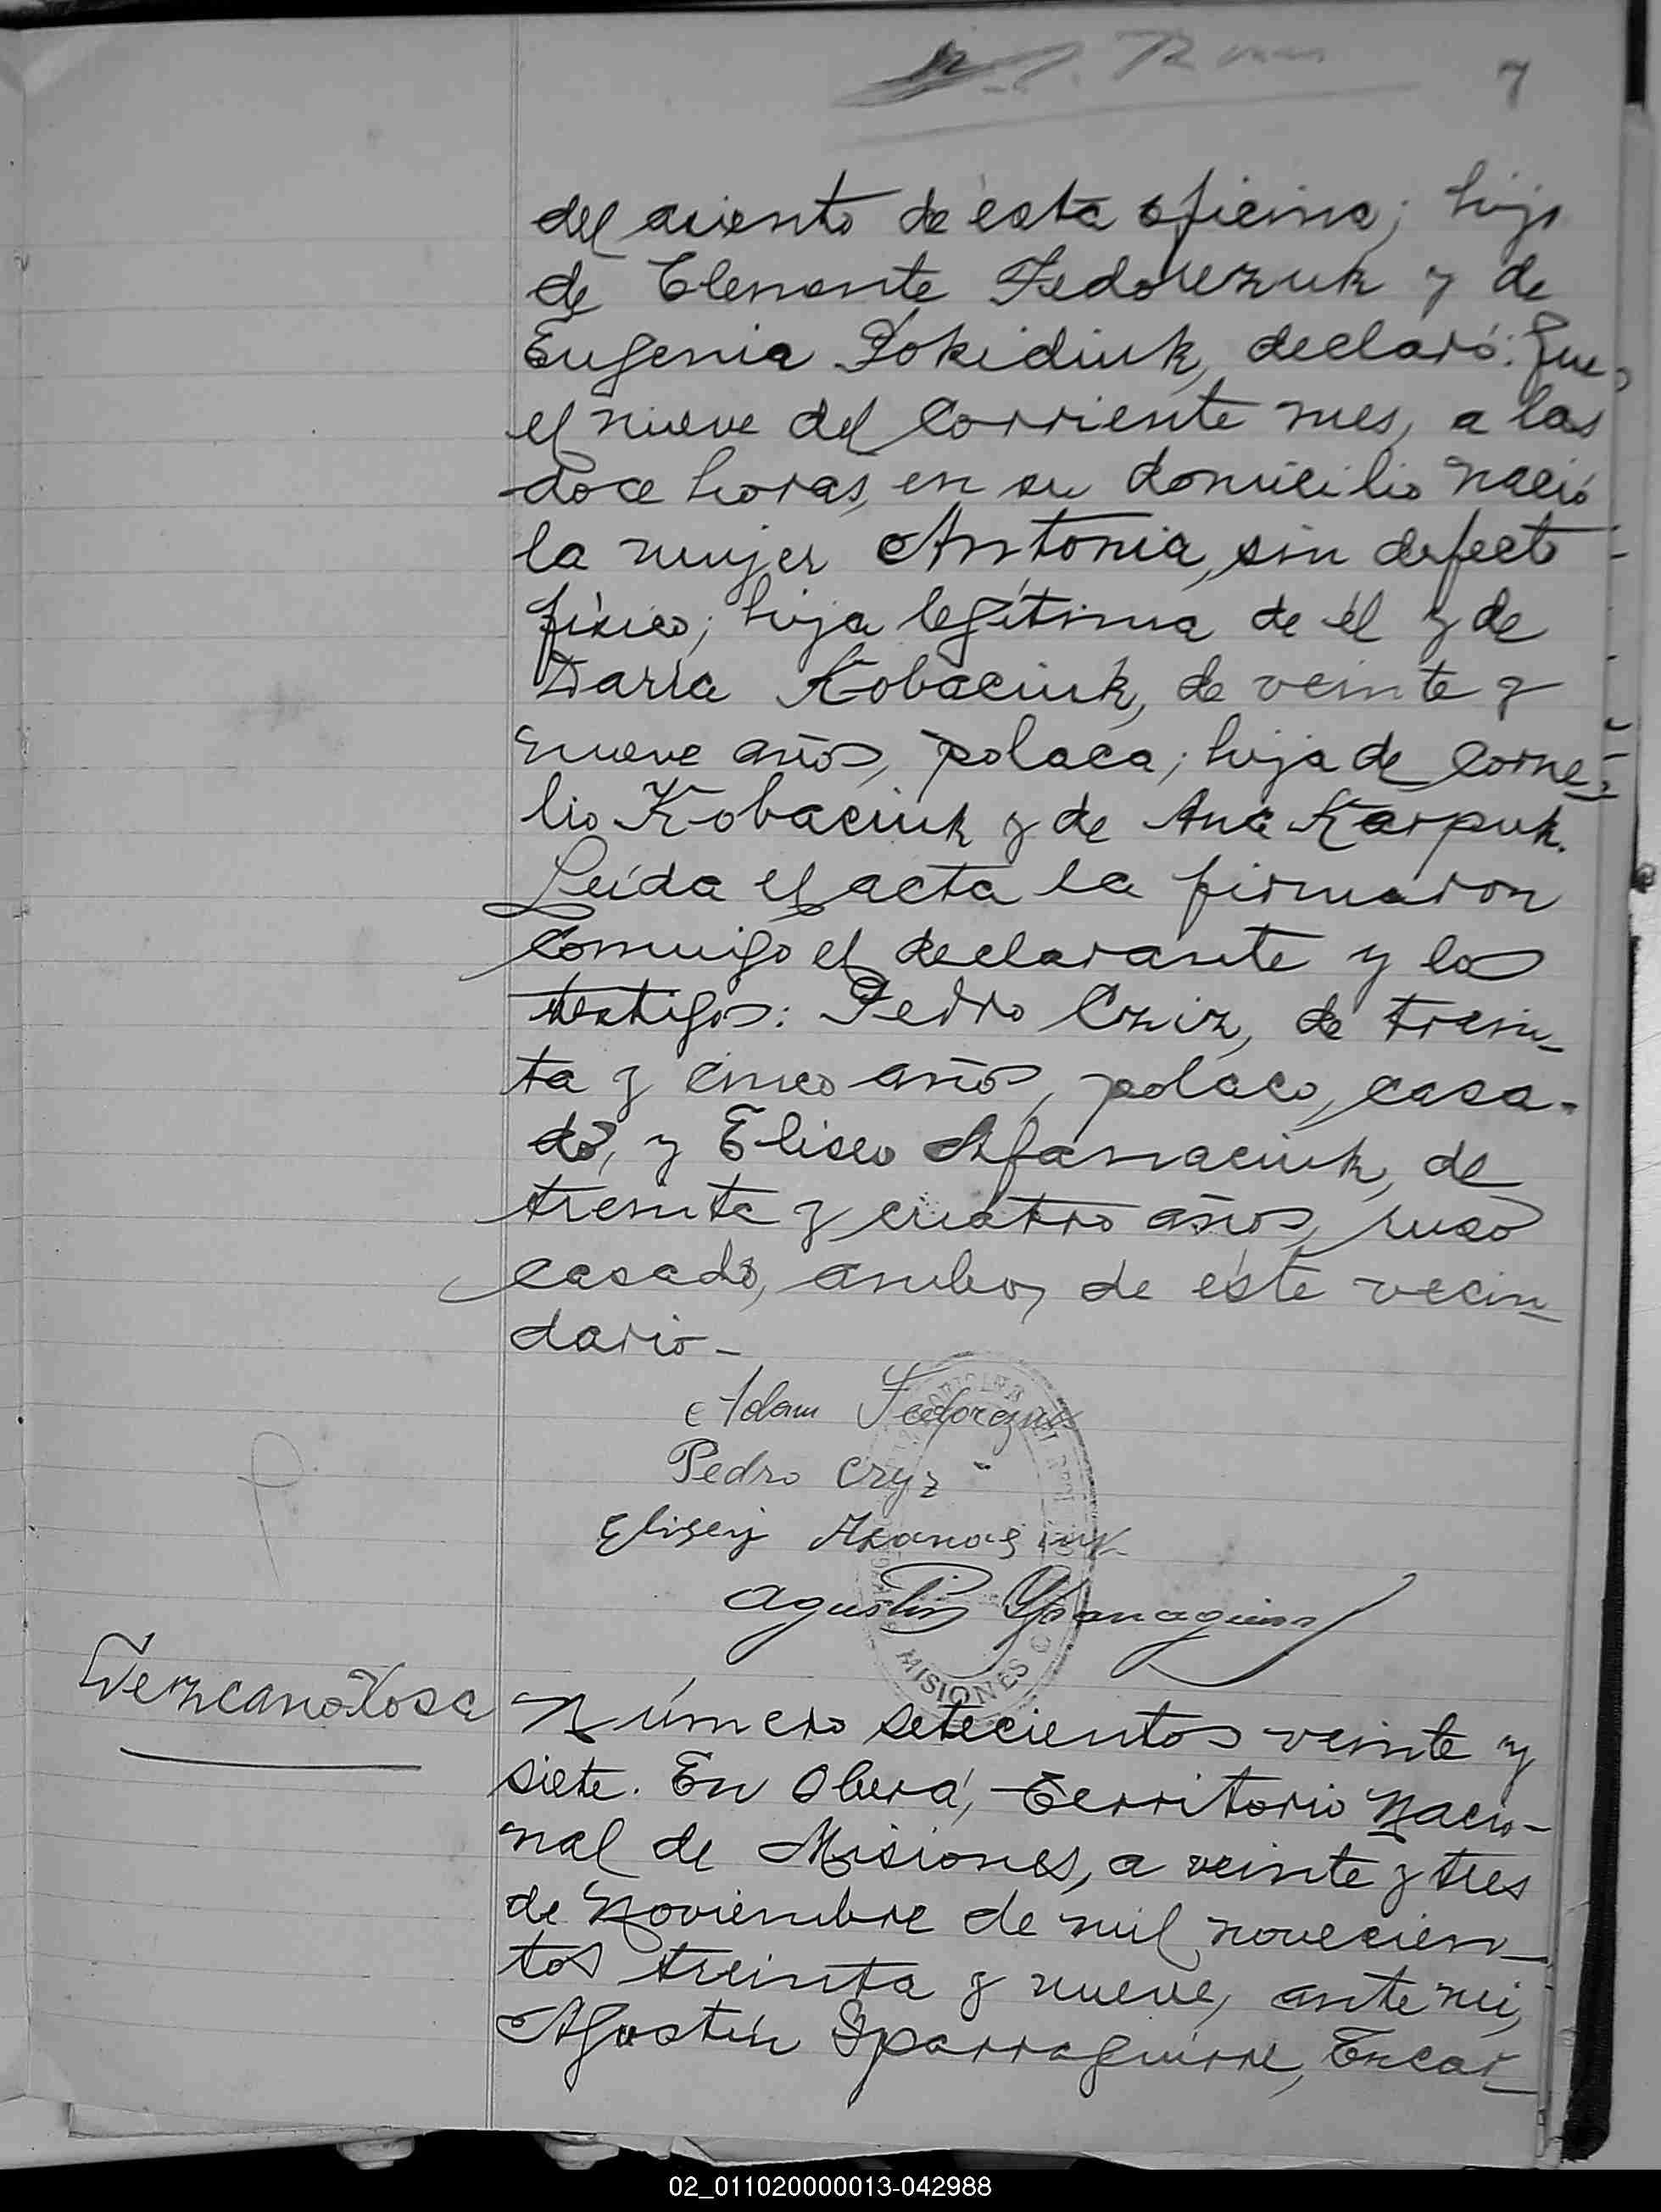 7
del asiento de ésta oficina; hijo
de Clemente Fedorczuk y de
Eugenia Pokidiuk, declaró: Que,
el nueve del corriente mes, a las
doce horas, en su domicilio nació
la mujer Antonia, sin defecto
físico; hija legítima de él y de
Daria Kobaciuk, de veinte y
nueve años, polaca; hija de Corne-
lio Kobaciuk y de Ana Karpuk.
Leída el acta la firmaron
conmigo el declarante y los
testigos: Pedro Cziz, de trein-
ta y cinco años, polaco, casa-
do, y Eliseo Afanaciuk, de
treinta y cuatro años, ruso
casado, ambos de éste vecin-
dario-
Adam Fedorczuk
Pedro Czyz
Elisey
Agustin Yparraguirre
MISIONES
Número setecientos veinte y
siete. En Oberá, Territorio Nacio-
nal de Misiones, a veinte y tres
de Noviembre de mil novecien-
tos treinta y nueve, ante mi,
Agustín Yparraguirre, Encar-
02_011020000013-042988